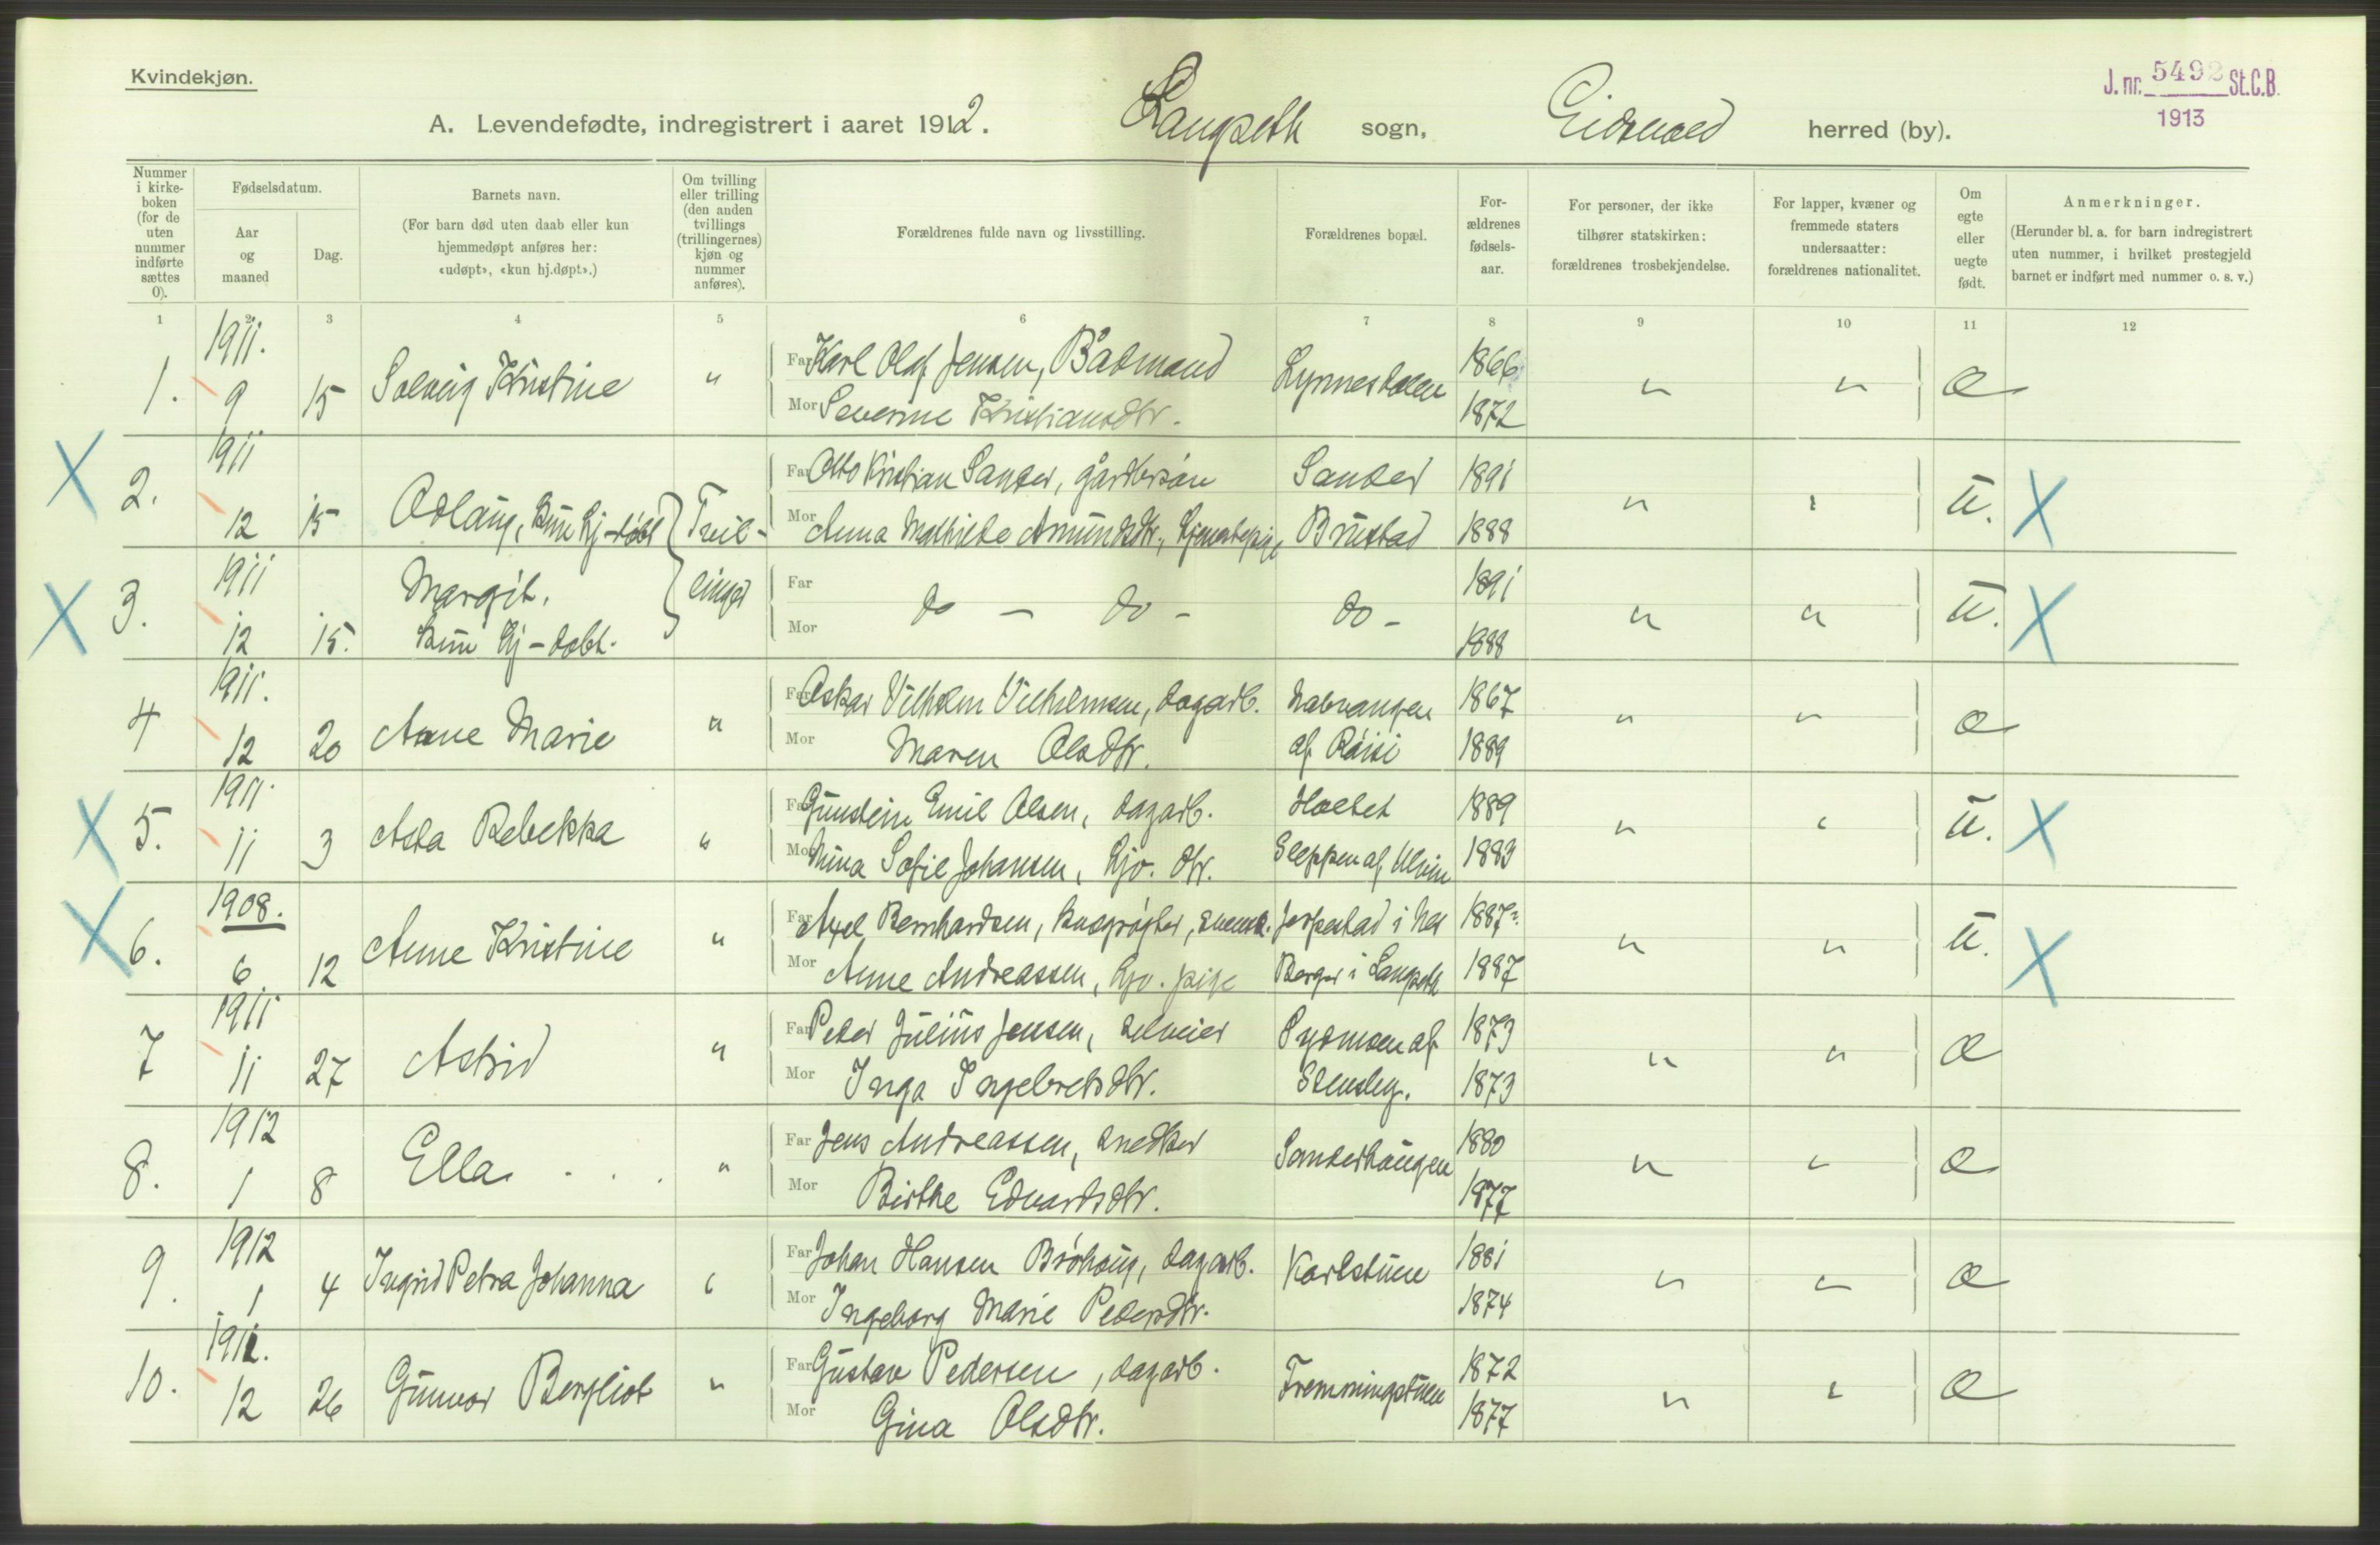 Kvindekjøn.
J. nr. 5492 St.C.B.
1913
A. Levendefødte, indregistrert i aaret 1912. Langseth sogn, Eidsvold herred (by).
Nummer i kirkeboken (for de uten nummer indførte sættes 0).
Fødselsdatum.
Aar og maaned
Dag.
Barnets navn.
(For barn død uten daab eller kun hjemmedøpt anføres her: «udøpt», «kun hj.døpt».)
Om tvilling eller trilling (den anden tvillings (trillingernes) kjøn og nummer anføres).
Forældrenes fulde navn og livsstilling.
Forældrenes bopæl.
Forældrenes fødselsaar.
For personer, der ikke tilhører statskirken: forældrenes trosbekjendelse.
For lapper, kvæner og fremmede staters undersaatter: forældrenes nationalitet.
Om egte eller uegte født.
Anmerkninger.
(Herunder bl. a. for barn indregistrert uten nummer, i hvilket prestegjeld barnet er indført med nummer o. s. v.)
1 2 3 4 5 6 7 8 9 10 11 12
1911.
1. 9 15 Solveig Kristine " Far Karl Olaf Jensen, Baadmand 1866 " " æ
Mor Severine Kristiansdtr. 1872
1911
Far Otto Kristian Sander, gårdbrsøn Sander 1891
2. 12 15 Odlaug, kun hj-døbt Tvil- Mor Anna Mathilde Amundsdtr., tjenestepige Brustad 1888 " " u.
1911
3. 12 15. Margit. linger Far do - do - do - 1891 " " u.
Kun hj-døbt. Mor 1888
1911.
4 12 20 Anne Marie " Far Oskar Vilhelm Vilhelmsen, dagarb. 1867 " " æ
Mor Maren Olsdtr. af Räisi 1889
1911.
5. 11 3 Asta Rebekka " Far Gunstein Emil Olsen, dagarb. Holtet 1889 " " u.
Mor Mina Sofie Johansen, hjv. dtr. Sleppen af Ulvin 1883
1908.
6. 6 12 Anne Kristine " Far Axel Bernhardsen, svensk. Jerpestad i Nes 1887 " " u.
Mor Anne Andreassen, tjv. pige Berger i Langseth 1887
1911
7 11 27 Astrid " Far Peder Julius Jensen, selveier 1873 " " æ
Mor Inga Ingebretsdtr. Stensby. 1873
1912
8. 1 8 Ella " Far Jens Andreassen, snedker Sanderhaugen 1880 " " æ
Mor Birthe Edvardsdtr. 1877
1912
9. 1 4 Ingrid Petra Johanna " Far Johan Hansen Bröhaug, dagarb. Karlstuen 1881 " " æ
Mor Ingeborg Marie Pedersdtr. 1874
1911.
10. 12 26 Gunvor Bergliot " Far Gustav Pedersen, dagarb. Fremmingstuen 1872 " " æ
Mor Gina Olsdtr. 1877